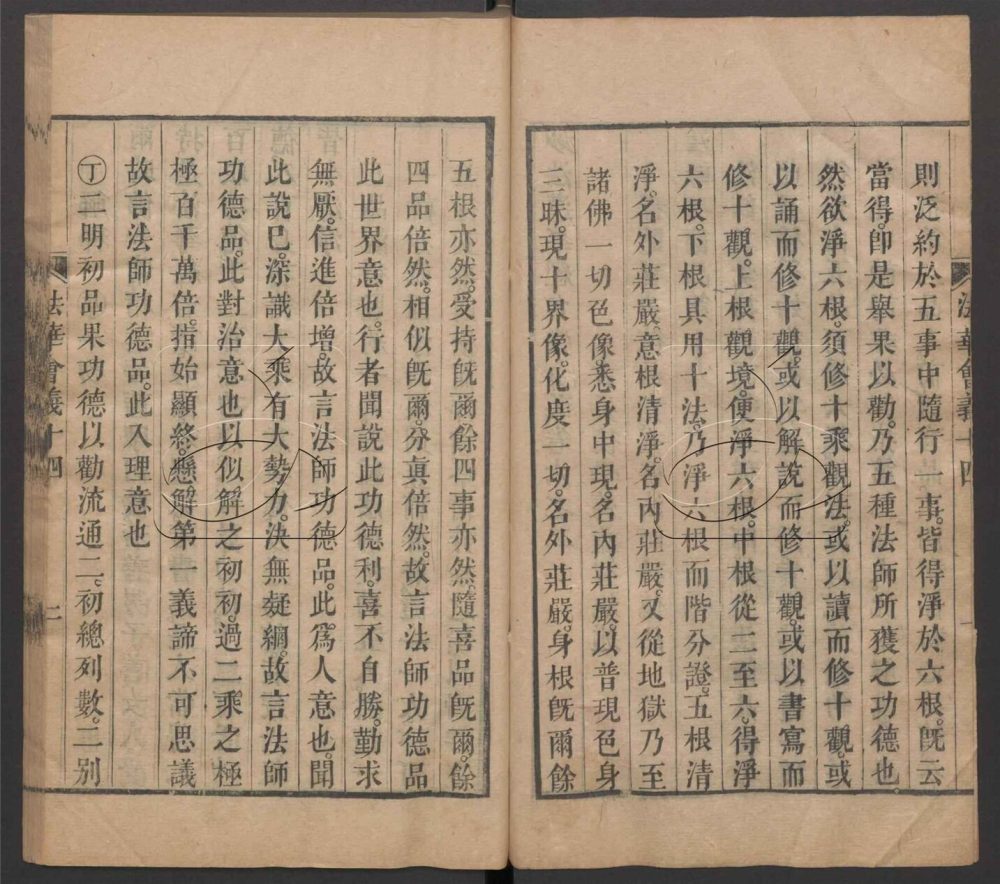 則泛約於五事中隨行一事。皆得淨於六根。旣云
當得。卽是舉果以勸。乃五種法師所獲之功德也。
然欲淨六根。須修十乘觀法。或以讀而修十觀。或
以誦而修十觀。或以解說而修十觀。或以書寫而
修十觀。上根觀境。便淨六根。中根從二至六。得淨
六根。下根具用十法。乃淨六根而階分證。五根清
淨。名外莊嚴。意根清淨。名內莊嚴。又從地獄乃至
諸佛一切色像。悉身中現。名內莊嚴。以普現色身
三昧。現十界像。化度一切。名外莊嚴。身根旣爾餘
法華會義十四
五根亦然。受持旣爾餘四事亦然。隨喜品旣爾。餘
四品倍然。相似旣爾。分眞倍然。故言法師功德品
此世界意也。行者聞說此功德利。喜不自勝。勤求
無厭。信進倍增。故言法師功德品。此爲人意也。聞
此說巳。深識大乘有大勢力。決無疑網。故言法師
功德品。此對治意也以似解之初初。過二乘之極
極百千萬倍。指始顯終。懸解第一義諦不可思議
故言法師功德品。此入理意也
丁二明初品果功德以勸流通二。初總列數。二別
法華會義十四 二